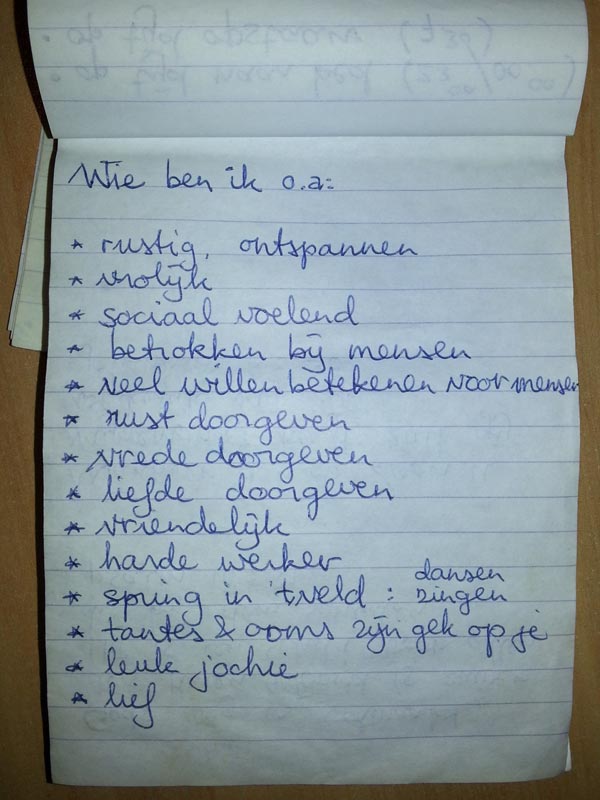 Wie ben ik o.a:
* rustig, ontspannen
* vrolijk
* sociaal voelend
* betrokken bij mensen
* veel willen betekenen voor mensen
* rust doorgeven
* vrede doorgeven
* liefde doorgeven
* vriendelijk
* harde werker
* spring in 't veld : dansen
zingen
* tantes & ooms zijn gek op je
* leuk jochie
* lief